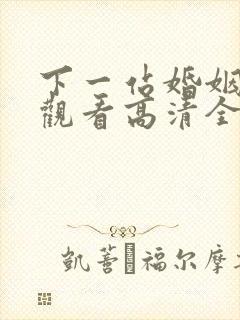 下一佔婚姻
觀看高清全
凱薈 福尔摩